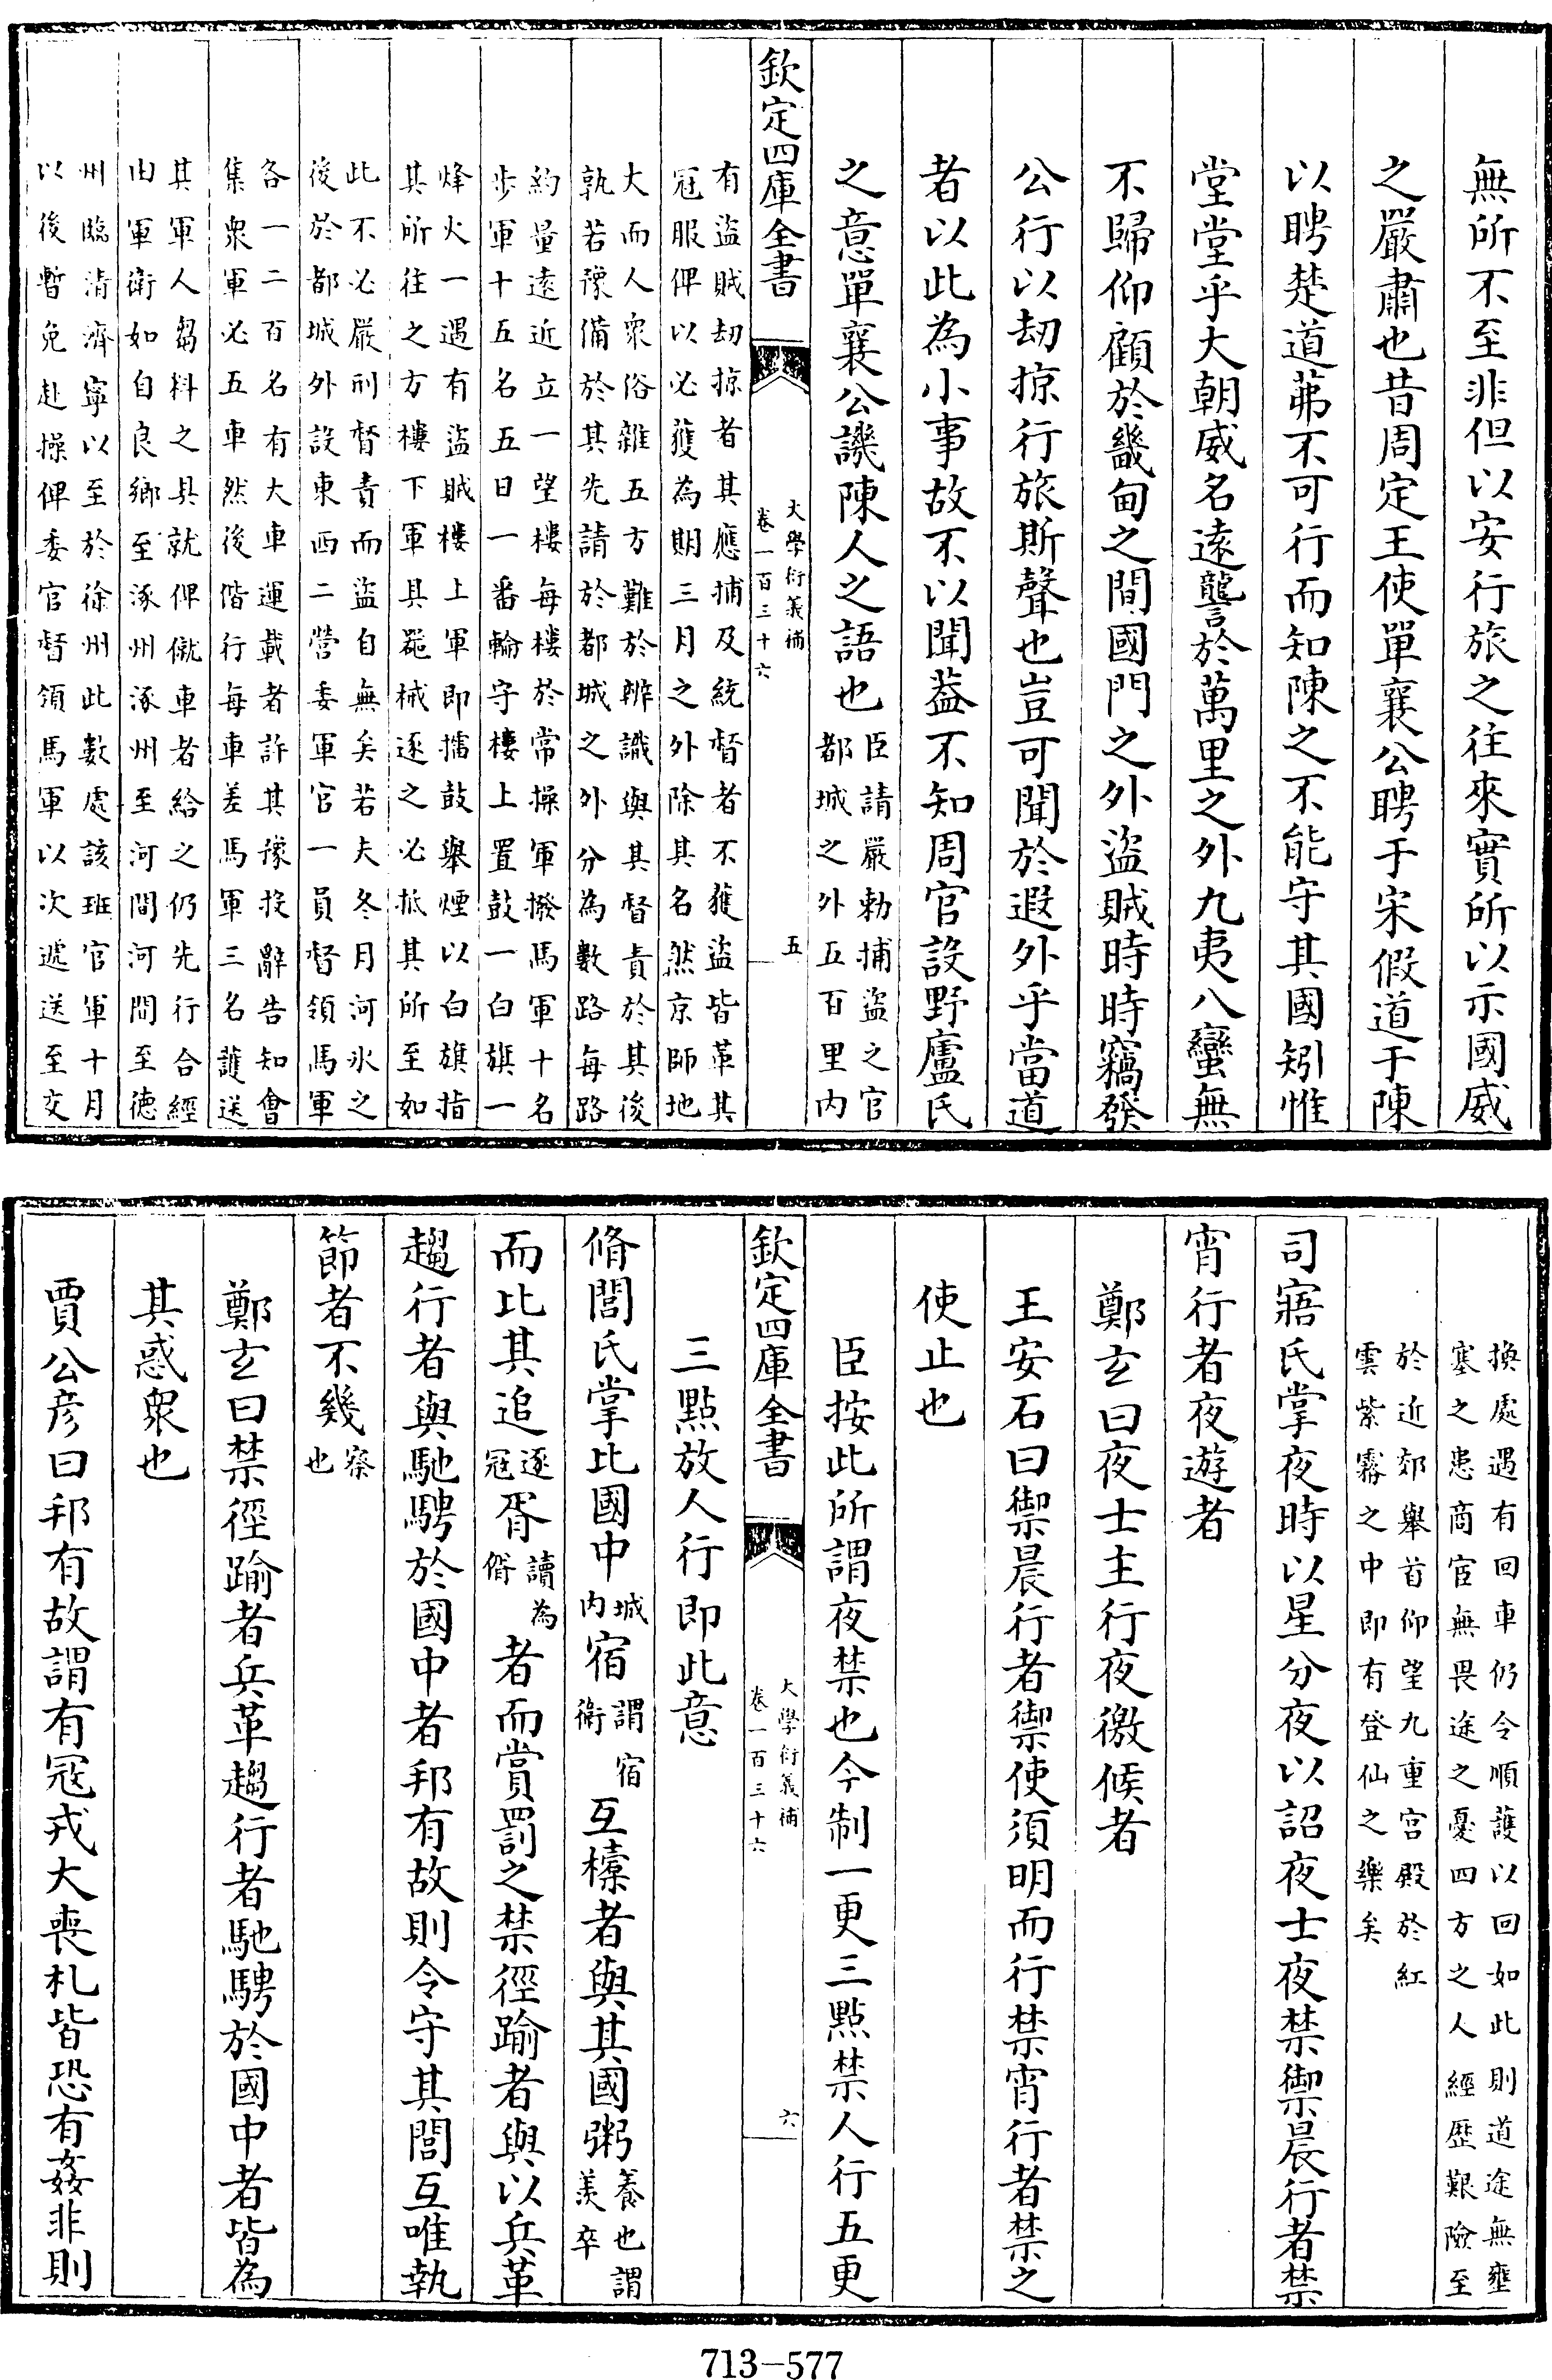 無所不至非但以安行旅之往來實所以示國威
之嚴肅也昔周定王使單襄公聘于宋假道于陳
以聘楚道茀不可行而知陳之不能守其國矧惟
堂堂乎大朝威名遠讋於萬里之外九夷八蠻無
不歸仰顧於畿甸之間國門之外盜賊時時竊發
公行以刼掠行旅斯聲也豈可聞於遐外乎當道
者以此為小事故不以聞葢不知周官設野廬氏
之意單襄公譏陳人之語也
臣請嚴勅捕盜之官
都城之外五百里內
欽定四庫全書
大學衍義補
卷一百三十六
五
有盜賊刼掠者其應捕及統督者不獲盜皆革其
冠服俾以必獲為期三月之外除其名然京師地
大而人衆俗雜五方難於辨識與其督責於其後
孰若豫備於其先請於都城之外分為數路每路
約量遠近立一望樓每樓於常操軍撥馬軍十名
步軍十五名五日一番輪守樓上置鼓一白旗一
烽火一遇有盜賊樓上軍即擂鼓舉煙以白旗指
其所往之方樓下軍具器械逐之必抵其所至如
此不必嚴刑督責而盜自無矣若夫冬月河氷之
後於都城外設東西二營委軍官一員督領馬軍
各一二百名有大車運載者許其豫投辭告知會
集衆軍必五車然後偕行每車差馬軍三名護送
其軍人芻料之具就俾僦車者給之仍先行合經
由軍衛如自良鄉至涿州涿州至河間河間至德
州臨清濟寧以至於徐州此數處該班官軍十月
以後暫免赴操俾委官督領馬軍以次遞送至交
換處遇有回車仍令順護以回如此則道途無壅
塞之患商宦無畏途之憂四方之人經歷艱險至
於近郊舉首仰望九重宫殿於紅
雲紫霧之中即有登仙之樂矣
司寤氏掌夜時以星分夜以詔夜士夜禁禦晨行者禁
宵行者夜遊者
鄭玄曰夜士主行夜徼候者
王安石曰禦晨行者禦使須明而行禁宵行者禁之
使止也
臣按此所謂夜禁也今制一更三點禁人行五更
欽定四庫全書
大學衍義補
卷一百三十六
六
三點放人行即此意
脩閭氏掌比國中城內宿謂宿衛互㯓者與其國粥養也謂羡卒
而比其追逐冦胥讀為偦者而賞罰之禁徑踰者與以兵革
趨行者與馳騁於國中者邦有故則令守其閭互唯執
節者不幾察也
鄭玄曰禁徑踰者兵革趨行者馳騁於國中者皆為
其惑衆也
賈公彥曰邦有故謂有冦戎大喪札皆恐有姦非則
713—577